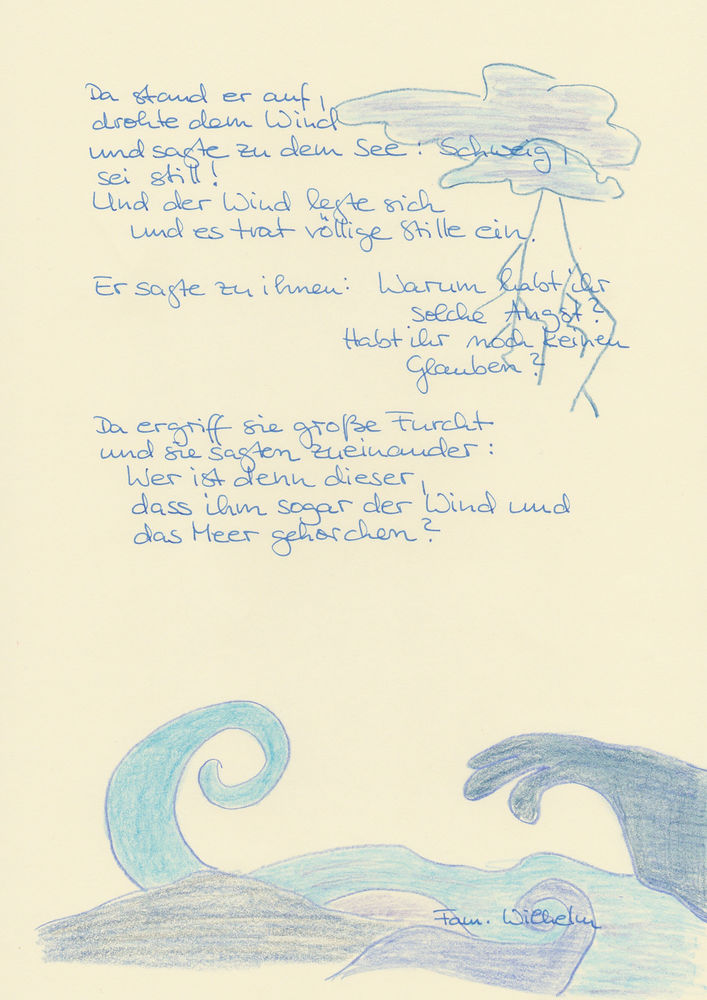 Da stand er auf,
drohte dem Wind
und sagte zu dem See: Schweig,
sei still!
Und der Wind legte sich
und es trat völlige Stille ein.
Er sagte zu ihnen: Warum habt ihr
solche Angst?
Habt ihr noch keinen
Glauben?
Da ergriff sie große Furcht
und sie sagten zueinander:
Wer ist denn dieser,
dass ihm sogar der Wind und
das Meer gehorchen?
Fam. Wilhelm